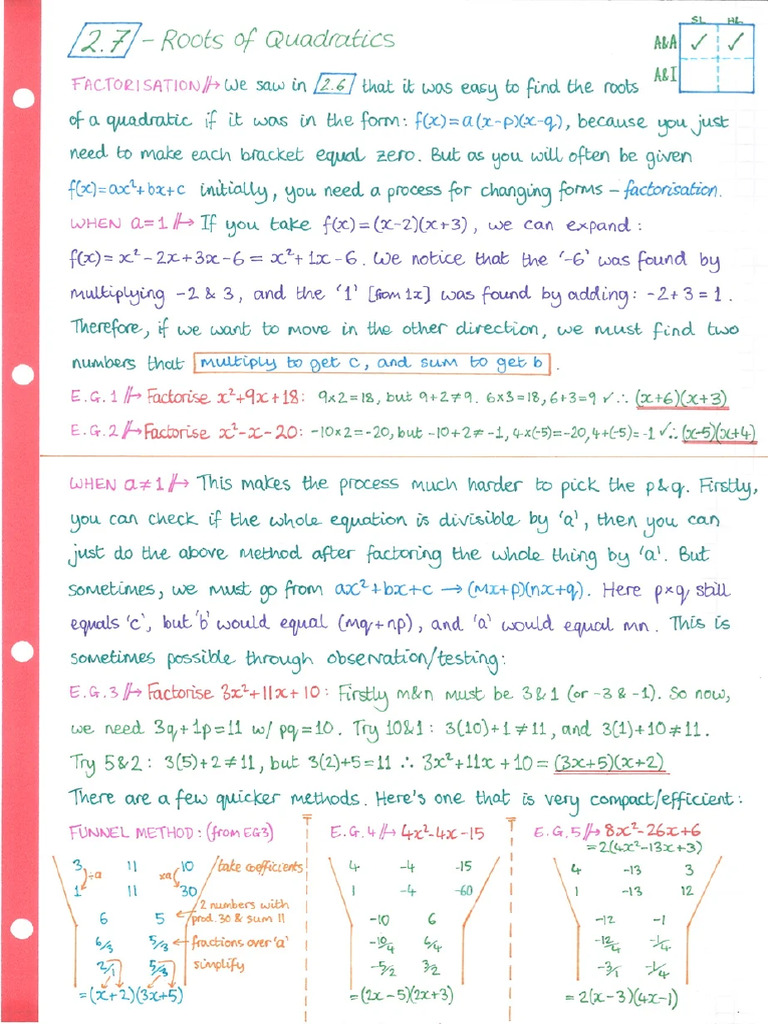 SL HL
2.7 – Roots of Quadratics
A&A ✓ ✓
A&I
FACTORISATION // We saw in 2.6 that it was easy to find the roots
of a quadratic if it was in the form: f(x)=a(x-p)(x-q), because you just
need to make each bracket equal zero. But as you will often be given
f(x)=ax²+bx+c initially, you need a process for changing forms – factorisation.
WHEN a=1 // If you take f(x)=(x-2)(x+3), we can expand:
f(x)= x² - 2x + 3x - 6 = x² + 1x - 6. We notice that the '-6' was found by
multiplying -2 & 3, and the '1' [from 1x] was found by adding: -2+3 = 1.
Therefore, if we want to move in the other direction, we must find two
numbers that multiply to get c, and sum to get b.
E.G.1 // Factorise x²+9x+18: 9×2=18, but 9+2≠9. 6×3=18, 6+3=9 ✓ ∴ (x+6)(x+3)
E.G.2 // Factorise x²-x-20: -10×2=-20, but -10+2≠-1, 4×(-5)=-20, 4+(-5)=-1 ✓ ∴ (x-5)(x+4)
WHEN a≠1 // This makes the process much harder to pick the p&q. Firstly,
you can check if the whole equation is divisible by 'a', then you can
just do the above method after factoring the whole thing by 'a'. But
sometimes, we must go from ax²+bx+c → (mx+p)(nx+q). Here p×q still
equals 'c', but 'b' would equal (mq+np), and 'a' would equal mn. This is
sometimes possible through observation/testing:
E.G.3 // Factorise 3x²+11x+10: Firstly m&n must be 3&1 (or -3 & -1). So now,
we need 3q+1p=11 w/ pq=10. Try 10&1: 3(10)+1≠11, and 3(1)+10≠11.
Try 5&2: 3(5)+2≠11, but 3(2)+5=11 ∴ 3x²+11x+10=(3x+5)(x+2)
There are a few quicker methods. Here's one that is very compact/efficient:
FUNNEL METHOD: (from EG3)
3 11 10 take coefficients
÷a ×a
1 11 30
6 5 ← 2 numbers with prod. 30 & sum 11
6/3 5/3 ← fractions over 'a'
2/1 5/3 simplify
=(x+2)(3x+5)
E.G.4 // 4x²-4x-15
4 -4 -15
1 -4 -60
-10 6
-10/4 6/4
-5/2 3/2
=(2x-5)(2x+3)
E.G.5 // 8x²-26x+6
=2(4x²-13x+3)
4 -13 3
1 -13 12
-12 -1
-12/4 -1/4
-3/1 -1/4
=2(x-3)(4x-1)